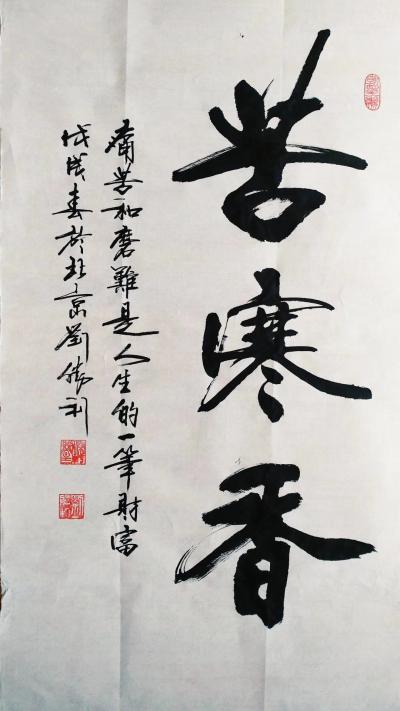 苦寒香
痛苦和磨難是人生的一筆財富
戊戌春於北京劉勝利